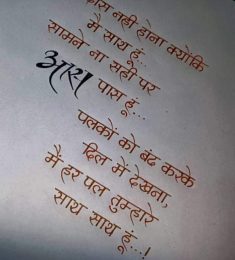 नही होना क्योकि
मै साथ हूं...
सामने ना सही पर
आस पास हूं...
पलकों को बंद करके
दिल में देखना,
मैं हर पल तुम्हारे
साथ साथ हूं...!